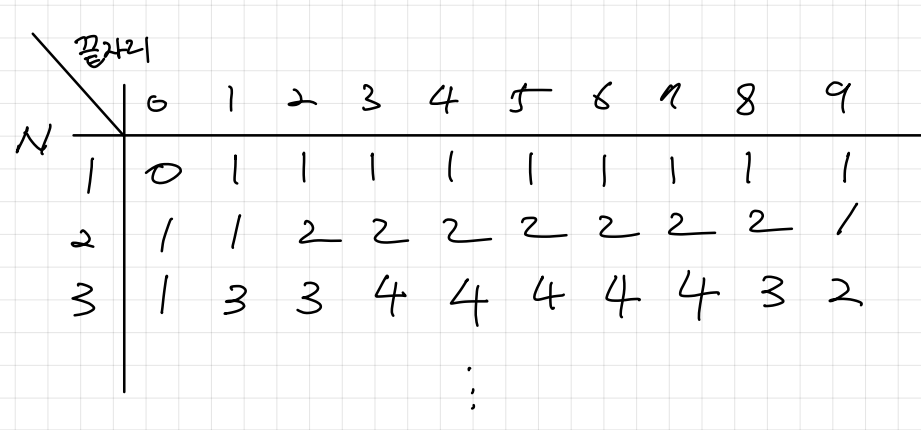 끝자리
0 1 2 3 4 5 6 7 8 9
N
1 0 1 1 1 1 1 1 1 1 1
2 1 1 2 2 2 2 2 2 2 1
3 1 3 3 4 4 4 4 4 3 2
⋮